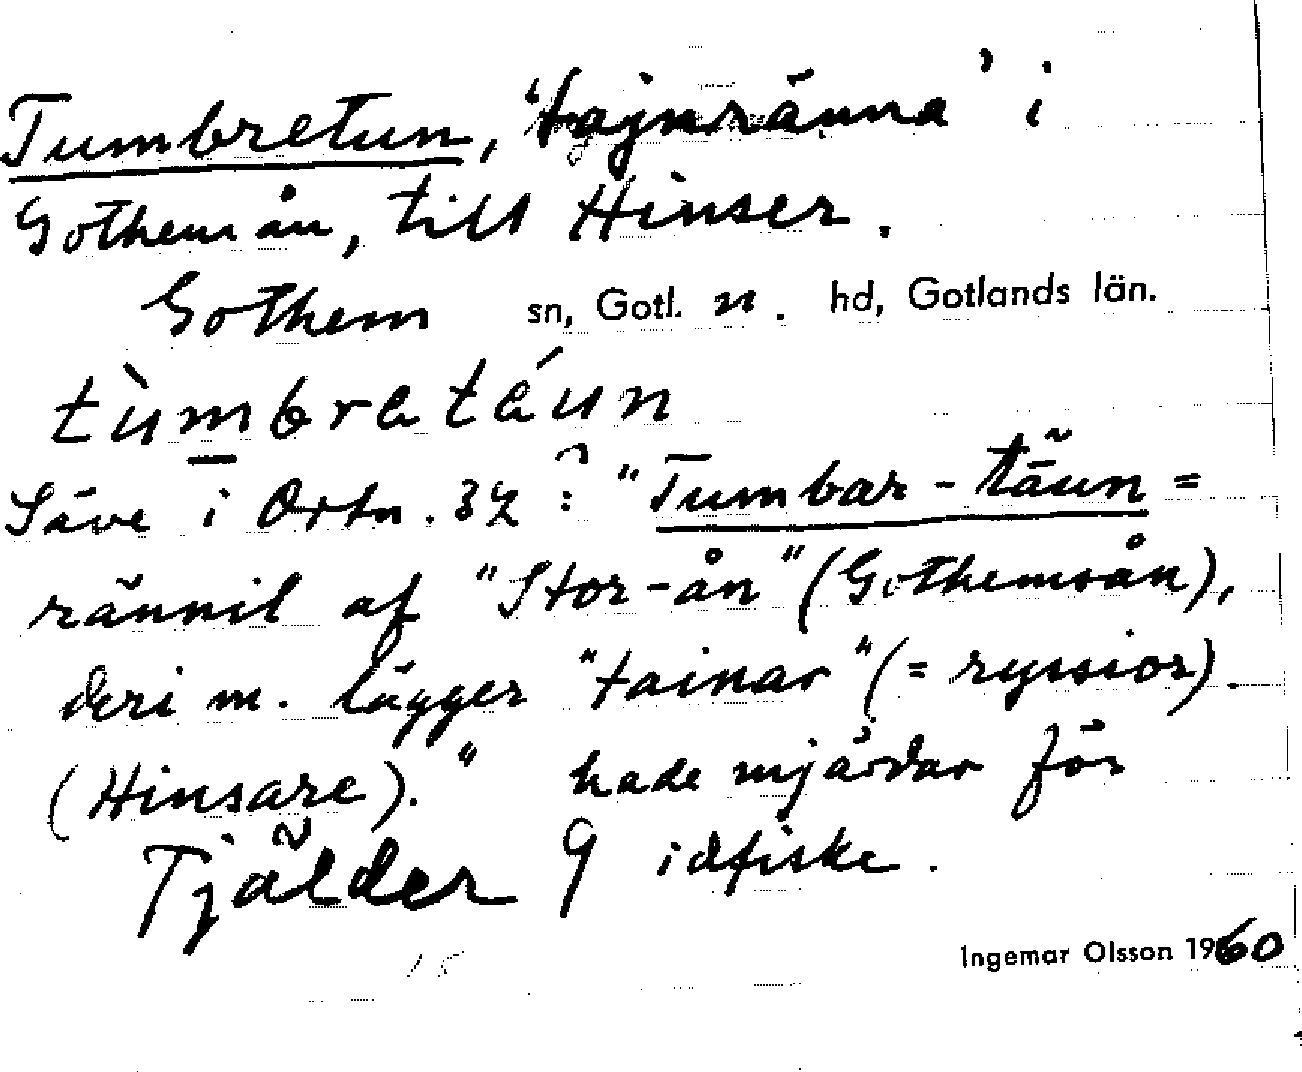 Tumbretun, 'tajnränna' i
Gothemån, till Hinser.
Gothem sn, Gotl. n. hd, Gotlands län.
tùmbratáun
Säve i Ortn. 32: "Tumbar-täun =
rännil af "Stor-ån" (Gothemsån),
deri m. lägger "tainar" (= ryssior).
(Hinsare)." hade mjärdar för
Tjälder 9 idfiske.
Ingemar Olsson 1960